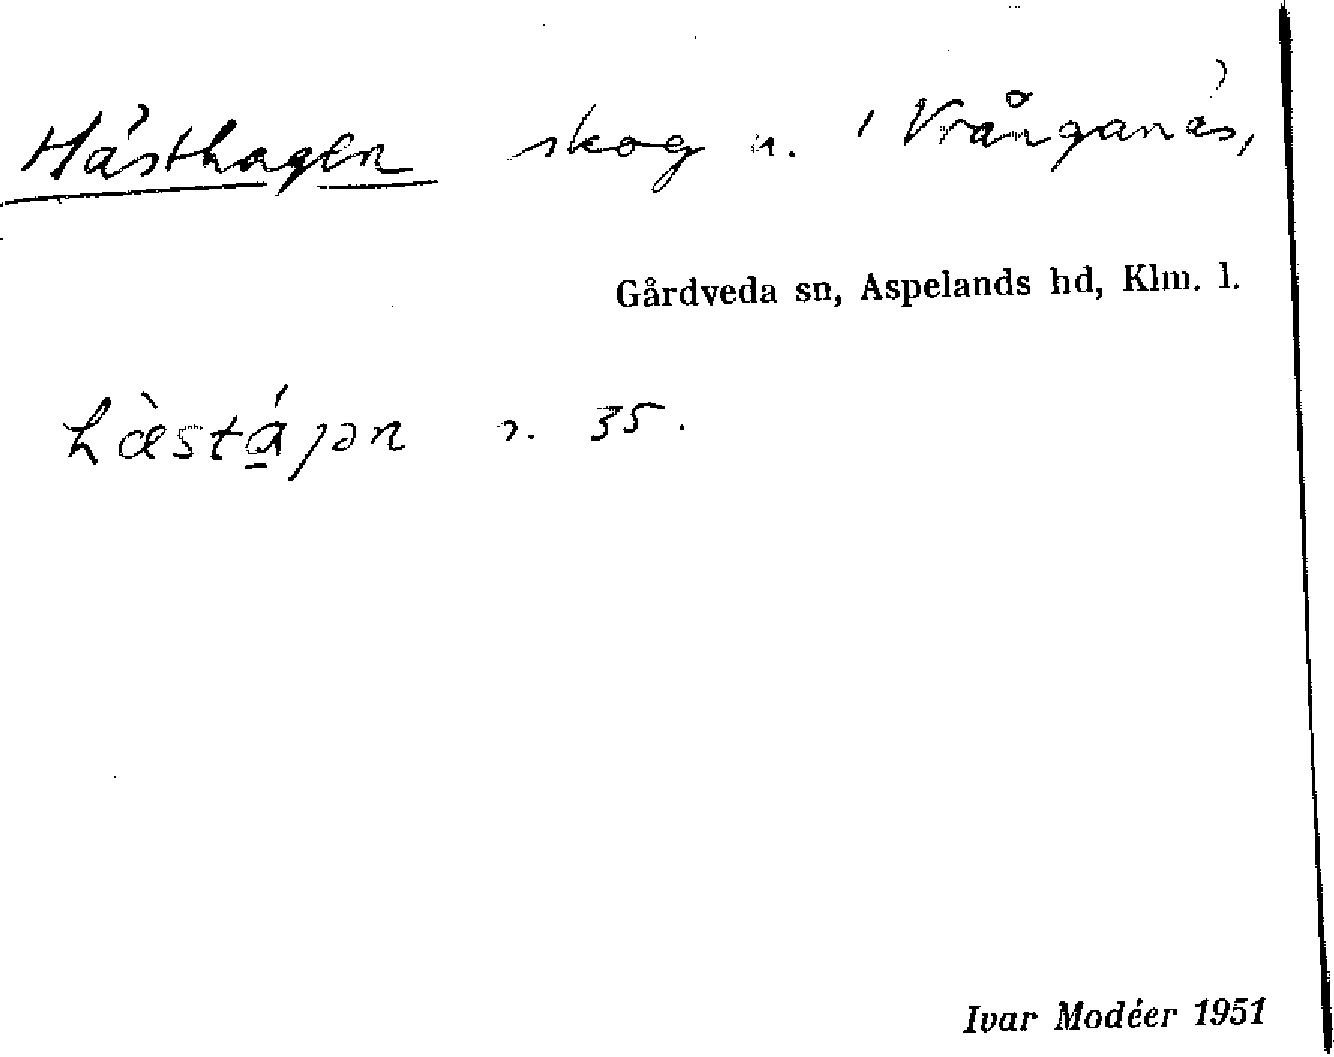 Hästhagen skog n. ' Vrånganäs,
Gårdveda sn, Aspelands hd, Klm. l.
hæ̀stá̱jən r. 35.
Ivar Modéer 1951